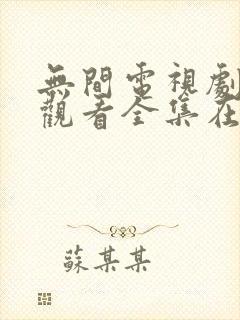 無間電視劇
觀看全集在
蘇某某